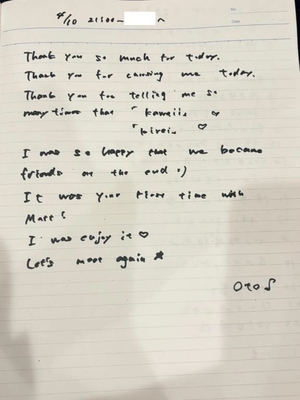 4/10 21:00~
Thank you so much for today.
Thank you for causing me today.
Thank you for telling me so
many times that "kawaii" ♡
"kirei" ♡
I was so happy that we became
friends on the end :)
It was your first time with
Matt!
I was enjoy it ♡
Let's meet again ★